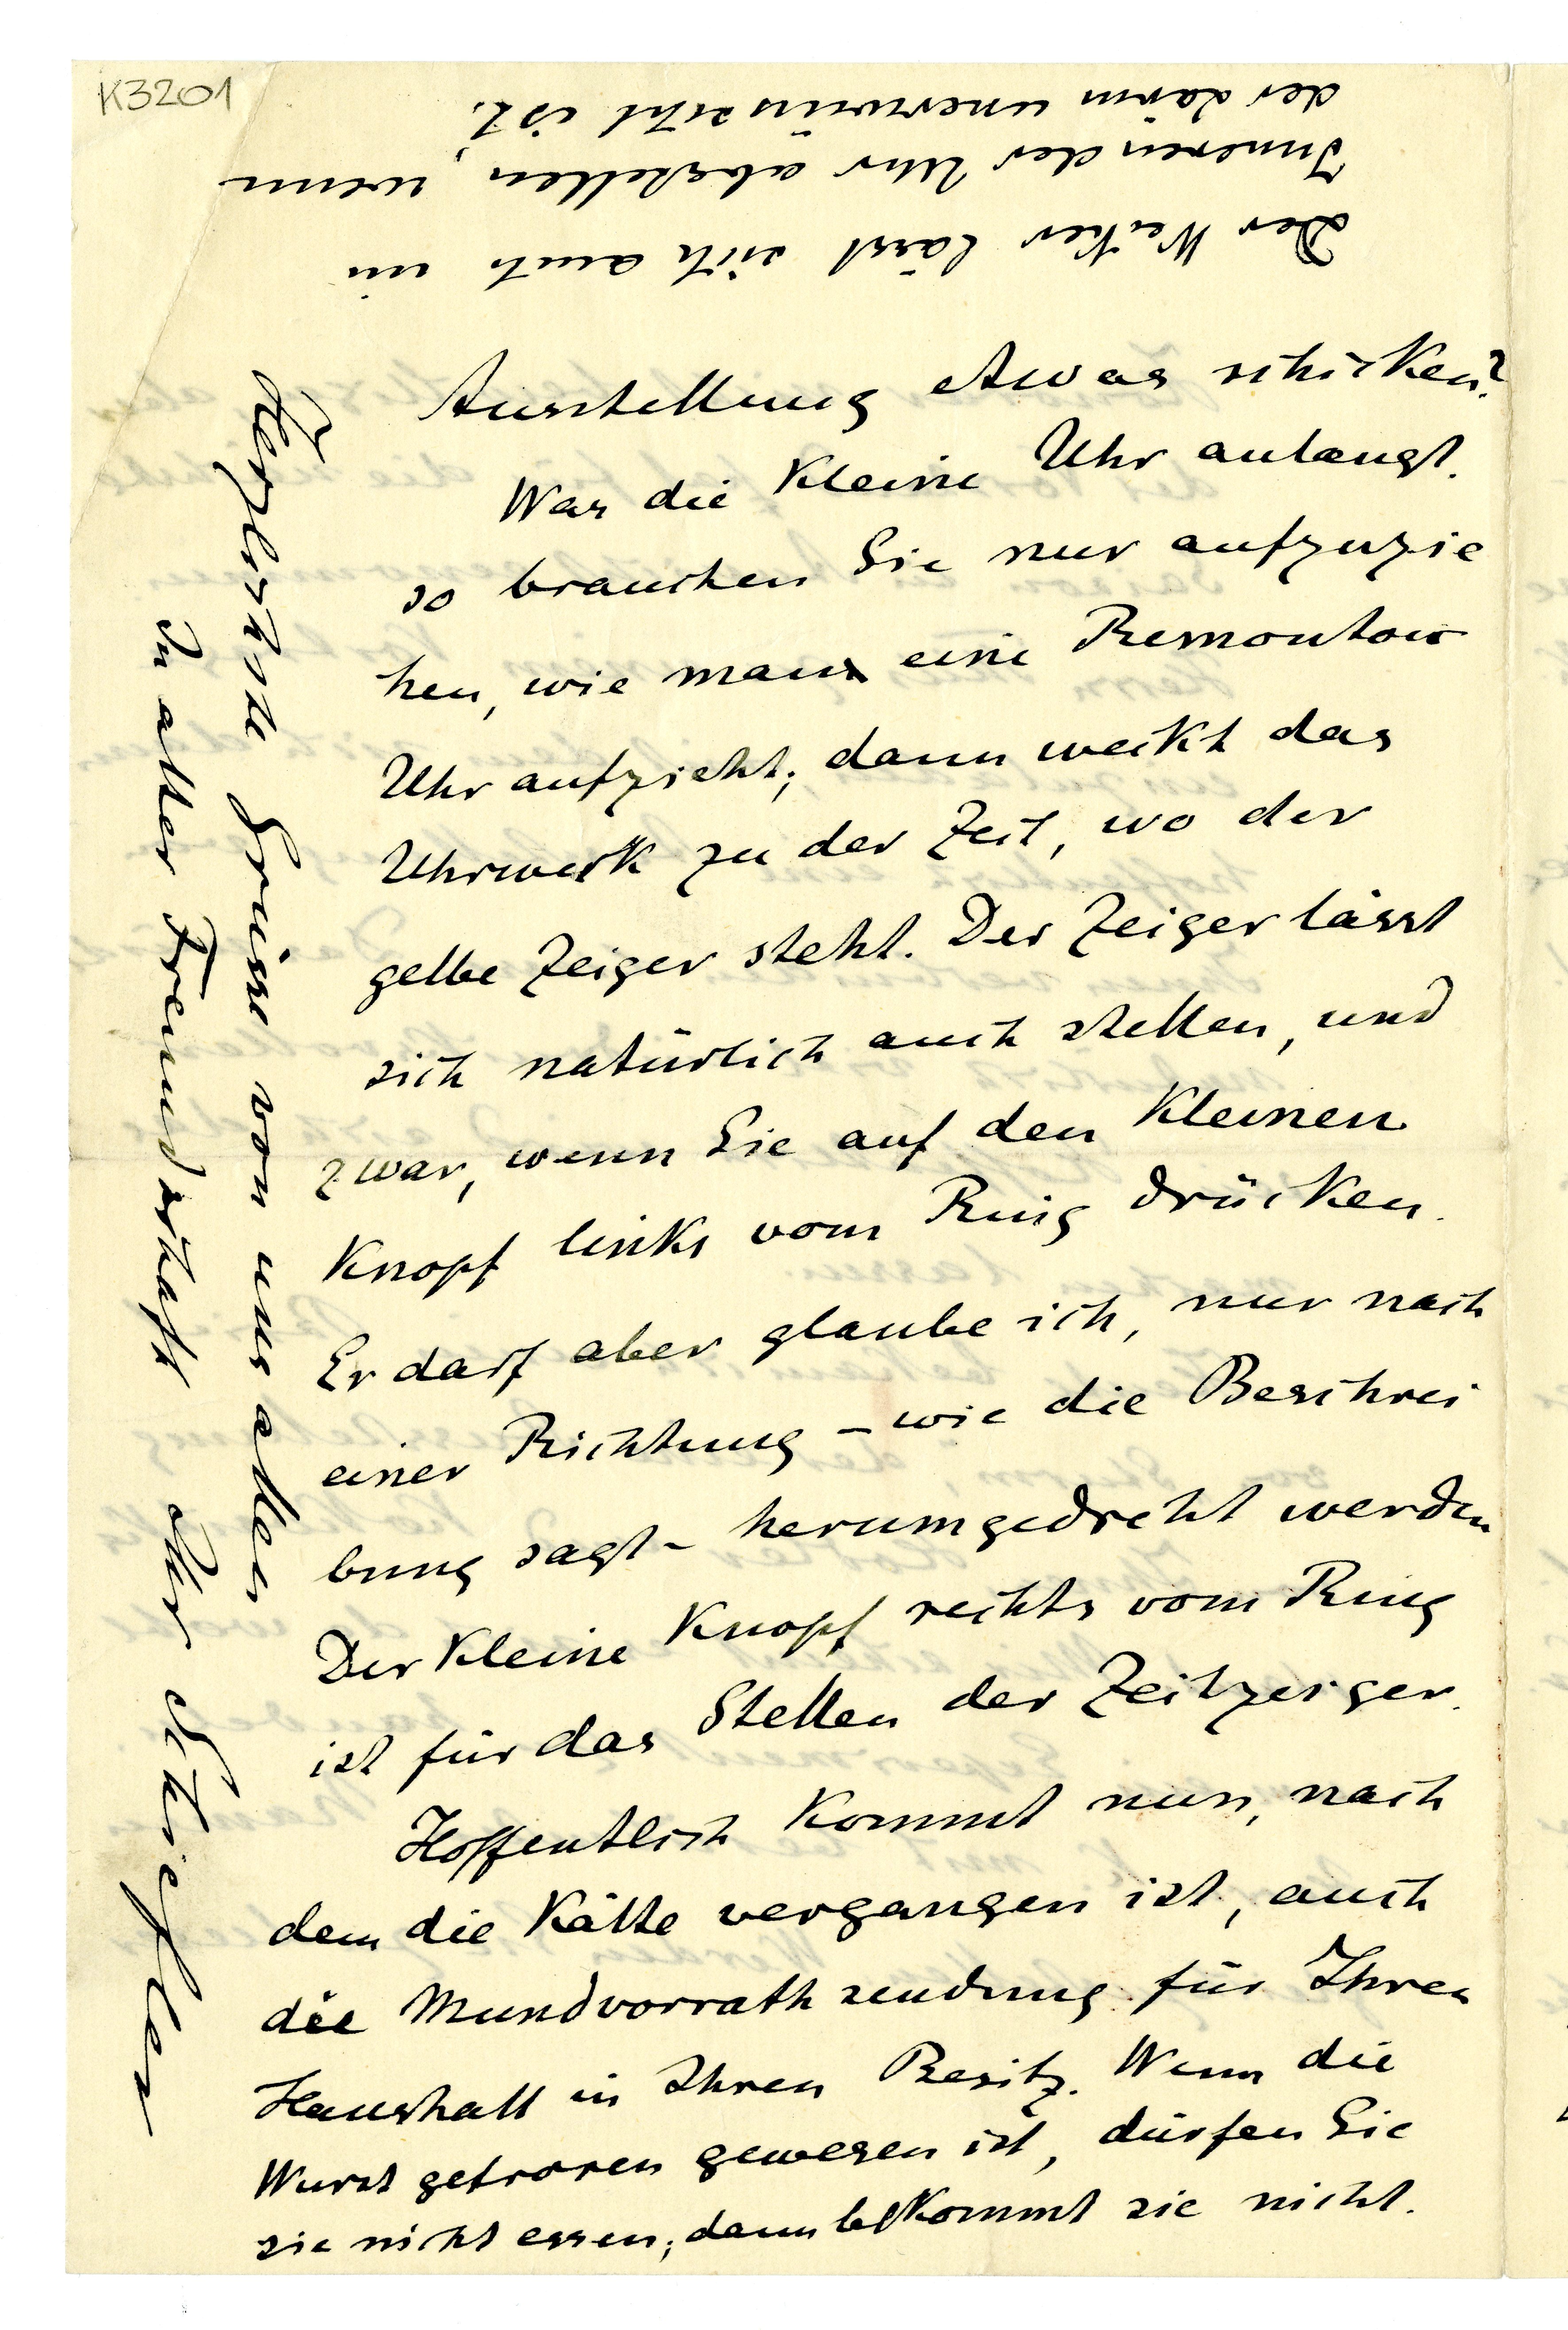 K3201
Ausstellung etwas schicken?
Was die Kleine Uhr anlangt.
so brauchen Sie nur aufzuzie
hen, wie man eine Remontoir
Uhr aufzieht; dann weckt das
Uhrwerk zu der Zeit, wo der
gelbe Zeiger steht. Der Zeiger lässt
sich natürlich auch stellen, und
zwar, wenn Sie auf den Kleinen
Knopf links vom Ring drücken.
Er darf aber glaube ich, nur nach
einer Richtung – wie die Beschrei
bung sagt – herumgedreht werden
Der Kleine Knopf rechts vom Ring
ist für das Stellen der Zeitzeiger.
Hoffentlich Kommt nun, nach
dem die Kälte vergangen ist, auch
die Mundvorrathsendung für Ihren
Haushalt in Ihren Besitz. Wenn die
Wurst gefroren gewesen ist, dürfen Sie
sie nicht essen; dann beKommt sie nicht.
Herzlichste Grüsse von uns allen
In alter Freundschaft Ihr Schiefler
Der Wecker lässt sich auch im
Inneren der Uhr abstellen, wenn
der Lärm unerwünscht ist.